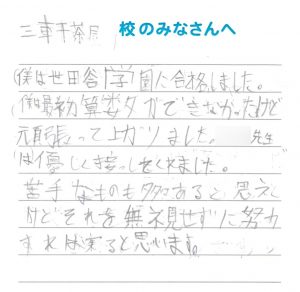 三軒茶屋 校のみなさんへ
僕は世田谷学園に合格しました。
僕は最初算数ダができなかったけど
頑張って上がりました。 先生
は優しく接してくれました。
苦手なものも多々あると思え
けどそれを無視せずに努力
すれば実ると思います。